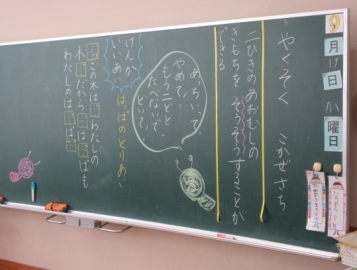 9月17日 か曜日
やくそく こかぜさち
二ひきのあおむしの
きもちをそうぞうすることが
できる
あちいて、
やめて、
もう二どと
たべないで、
どいて、
けんか
いいあい
はっぱのとりあい
この木はわたしの
木だからはっぱも
わたしのはっぱ